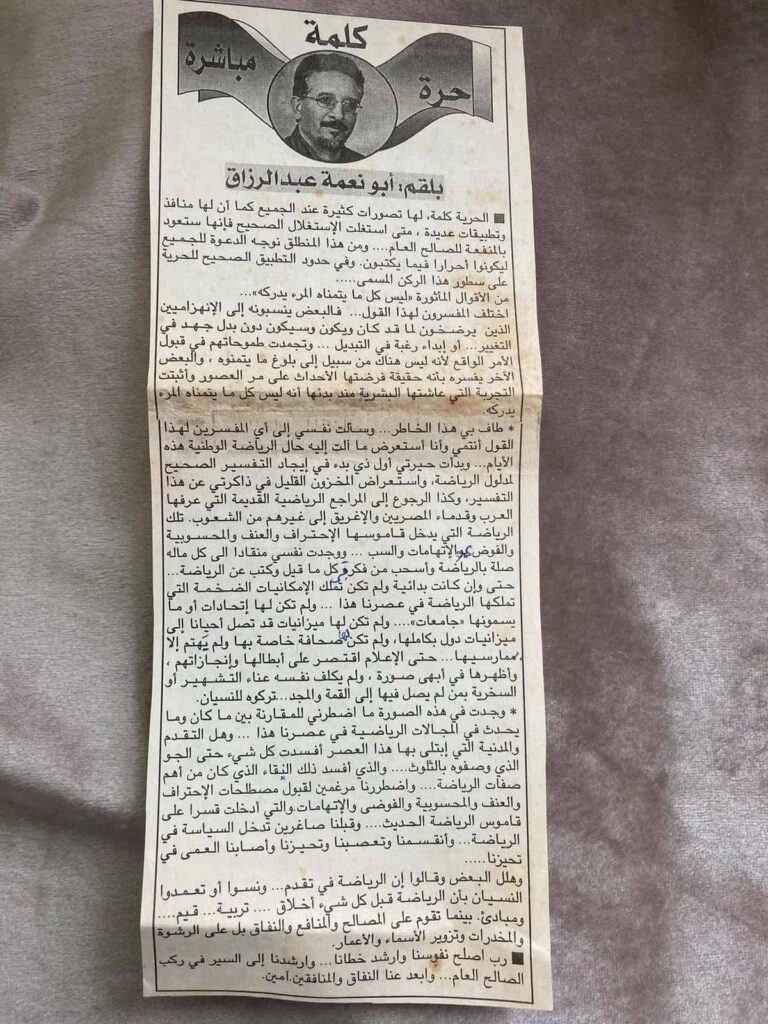 كلمة
حرة
مباشرة
بلقم: أبو نعمة عبدالرزاق
■ الحرية كلمة، لها تصورات كثيرة عند الجميع كما أن لها منافذ
وتطبيقات عديدة ، متى استغلت الإستغلال الصحيح فإنها ستعود
بالمنفعة للصالح العام.... ومن هذا المنطلق نوجه الدعوة للجميع
ليكونوا أحرارا فيما يكتبون. وفي حدود التطبيق الصحيح للحرية
على سطور هذا الركن المسمى.....
من الأقوال المأثورة «ليس كل ما يتمناه المرء يدركه»...
اختلف المفسرون لهذا القول... فالبعض ينسبونه إلى الإنهزاميين
الذين يرضخون لما قد كان ويكون وسيكون دون بدل جهد في
التغيير... أو إبداء رغبة في التبديل ... وتجمدت طموحاتهم في قبول
الأمر الواقع لأنه ليس هناك من سبيل إلى بلوغ ما يتمنوه ، والبعض
الآخر يفسره بأنه حقيقة فرضتها الأحداث على مر العصور وأثبتت
التجربة التي عاشتها البشرية مند بدئها أنه ليس كل ما يتمناه المرء
يدركه.
* طاف بي هذا الخاطر... وسألت نفسي إلى أي المفسرين لهذا
القول أنتمي وأنا أستعرض ما آلت إليه حال الرياضة الوطنية هذه
الأيام... وبدأت حيرتي أول ذي بدء في إيجاد التفسير الصحيح
لمدلول الرياضة، واستعراض المخزون القليل في ذاكرتي عن هذا
التفسير، وكذا الرجوع إلى المراجع الرياضية القديمة التي عرفها
العرب وقدماء المصريين والإغريق إلى غيرهم من الشعوب. تلك
الرياضة التي يدخل قاموسها الإحتراف والعنف والمحسوبية
والفوضى والإتهامات والسب ... ووجدت نفسي منقادا الى كل ماله
صلة بالرياضة وأسحب من فكري كل ما قيل وكتب عن الرياضة...
حتى وإن كانت بدائية ولم تكن تملك الإمكانيات الضخمة التي
تملكها الرياضة في عصرنا هذا ... ولم تكن لها إتحادات أو ما
يسمونها «جامعات».... ولم تكن لها ميزانيات قد تصل أحيانا إلى
ميزانيات دول بكاملها، ولم تكن لها صحافة خاصة بها ولم يهتم إلا
بممارسيها... حتى الإعلام اقتصر على أبطالها وإنجازاتهم ،
وأظهرها في أبهى صورة ، ولم يكلف نفسه عناء التشهير أو
السخرية بمن لم يصل فيها إلى القمة والمجد...تركوه للنسيان.
* وجدت في هذه الصورة ما اضطرني للمقارنة بين ما كان وما
يحدث في المجالات الرياضية في عصرنا هذا ... وهل التقدم
والمدنية التي إبتلى بها هذا العصر أفسدت كل شيء حتى الجو
الذي وصفوه بالثلوث.... والذي أفسد ذلك النقاء الذي كان من أهم
صفات الرياضة.... واضطررنا مرغمين لقبول مصطلحات الإحتراف
والعنف والمحسوبية والفوضى والإتهامات.والتي أدخلت قسرا على
قاموس الرياضة الحديث.... وقبلنا صاغرين تدخل السياسة في
الرياضة... وأنقسمنا وتعصبنا وتحيزنا وأصابنا العمى في
تحيزنا.....
وهلل البعض وقالوا إن الرياضة في تقدم... ونسوا أو تعمدوا
النسيان بأن الرياضة قبل كل شيء أخلاق .... تربية... قيم....
ومبادئ. بينما تقوم على المصالح والمنافع والنفاق بل على الرشوة
والمخدرات وتزوير الأسماء والأعمار.
■ رب اصلح نفوسنا وارشد خطانا... وارشدنا إلى السير في ركب
الصالح العام... وابعد عنا النفاق والمنافقين.آمين.